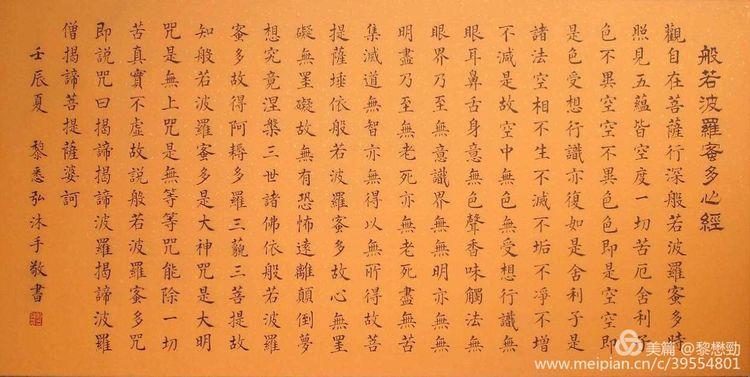 般若波羅蜜多心經
觀自在菩薩行深般若波羅蜜多時
照見五蘊皆空度一切苦厄舍利子
色不異空空不異色色即是空空即
是色受想行識亦復如是舍利子是
諸法空相不生不滅不垢不淨不增
不減是故空中無色無受想行識無
眼耳鼻舌身意無色聲香味觸法無
眼界乃至無意識界無無明亦無無
明盡乃至無老死亦無老死盡無苦
集滅道無智亦無得以無所得故菩
提薩埵依般若波羅蜜多故心無罣
礙無罣礙故無有恐怖遠離顛倒夢
想究竟涅槃三世諸佛依般若波羅
蜜多故得阿耨多羅三藐三菩提故
知般若波羅蜜多是大神咒是大明
咒是無上咒是無等等咒能除一切
苦真實不虛故說般若波羅蜜多咒
即說咒曰揭諦揭諦波羅揭諦波羅
僧揭諦菩提薩婆訶
壬辰夏 黎悉弘沐手敬書
美篇 @黎懋勁
www.meipian.cn/c/39554801